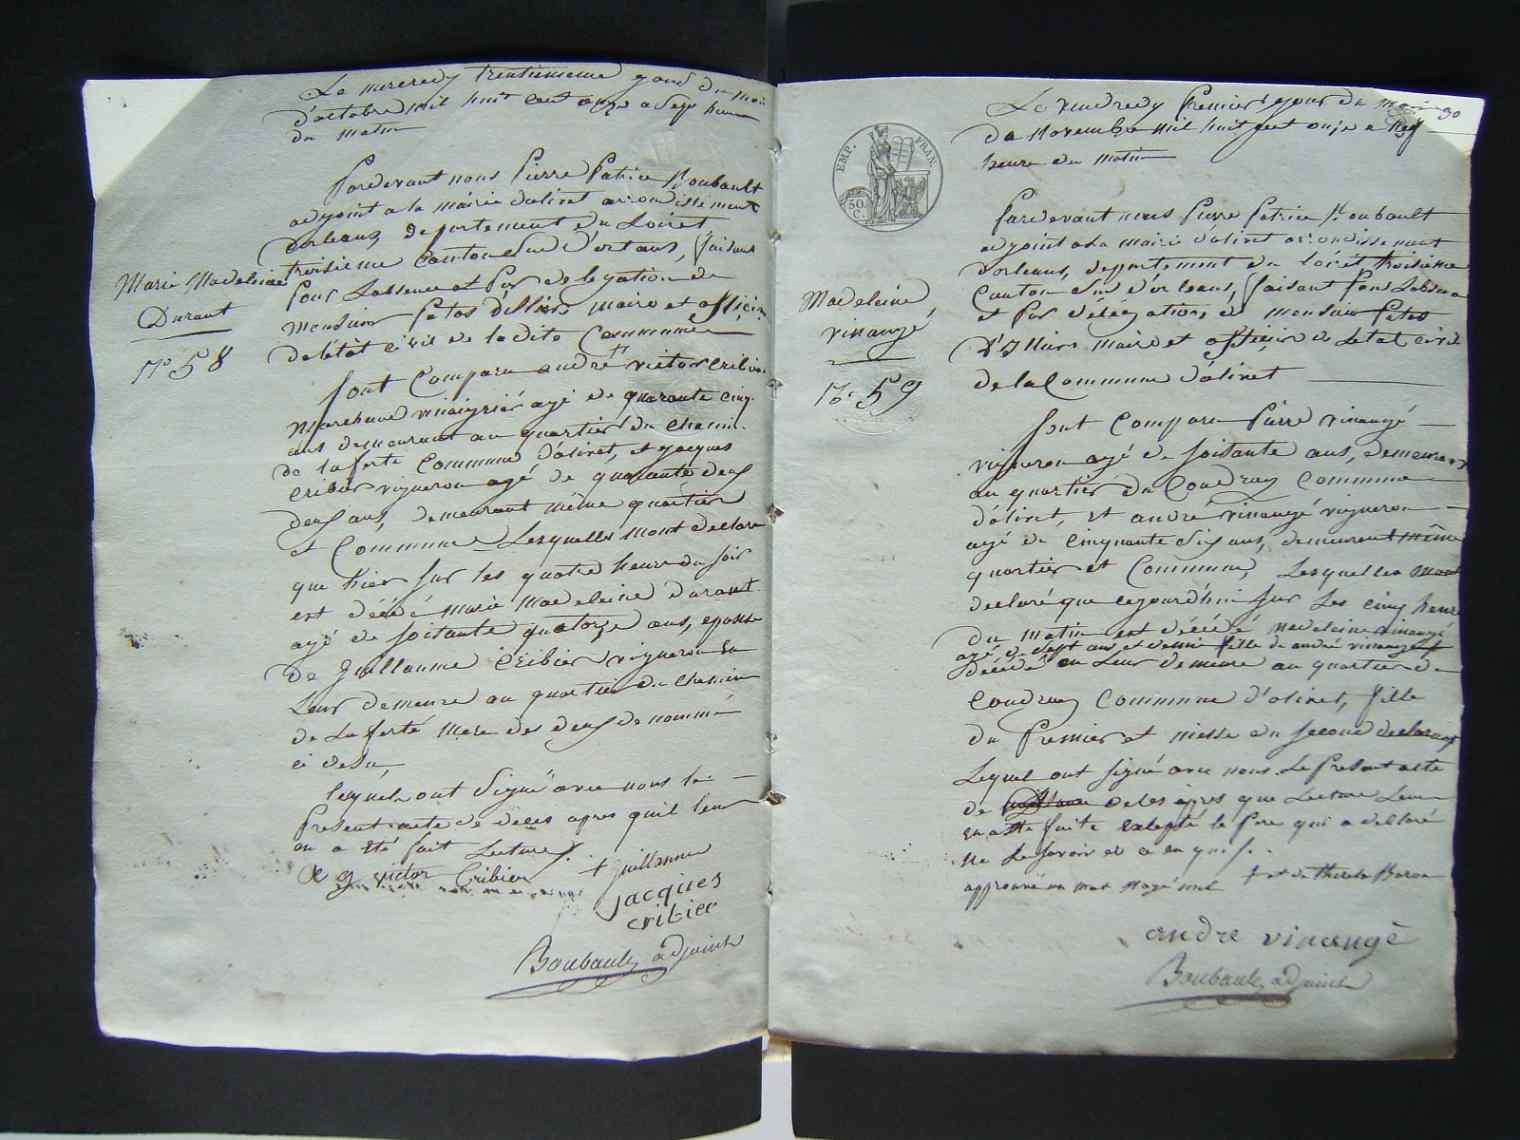 Le mercredy trentiemme jour du mois
d'octobre mil huit cent onze a sept heure
du matin
Pardevant nous Pierre Patrice Boubault
adjoint a la mairie d'olivet arrondissement
d'orleans, departement du Loiret
troisieme Canton sud d'orleans, faisant
Pour Labsence et Par delegation de
monsieur d'illiers maire et officier
de letat civil de la dite Commune
Marie Madeleine
Durant
No 58
Sont Comparu andré victor cribier
marchand vinaigrié agé de quarante cinq
ans demeurant au quartier du chemin
de la ferte Commune d'olivet, et jacques
cribier vigneron agé de quarante deux
deux ans, demeurant même quartier
et Commune Lesquelles mont declaré
que hier sur les quatre heure du soir
est décédé marie madeleine durant
agé de soitante quatorze ans, epouse
de guillaume Cribier vigneron en
Leur demeure au quartier du chemin
de La ferté mere des deux denommé
ci desu
lequels ont signé avec nous le
Present acte de deces apres quil leur
en a été fait Lecture
victor Cribier
+ guillaume
jacques
cribier
Boubault adjoint
30
Le vendredy Premier jour du mois
de Novembre mil huit cent onze a neuf
heure du matin
EMP. FRAN.
50 C.
Pardevant nous Pierre Patrice Boubault
adjoint a La mairie d'olivet arrondissement
d'orleans, departement du loiret troisieme
Canton sud d'orleans, faisant Pour Labsence
et Par délégation de monsieur
d'Illiers maire et officier de Letat civil
de la Commune d'olivet
Madeleine
vinauger
No 59
Sont Comparu Pierre vinaugé
vigneron agé de soitante ans, demeurant
au quartier du Coudray Commune
d'olivet, et andré vinaugé vigneron
agé de Cinquante six ans, demeurant même
quartier et Commune, Lesquelles mont
declaré que cejourdhui sur Les cinq heure
du matin est décédé Madeleine vinaugé
agé de sept ans et demi fille de andré vinaugé
décédé en Leur demeure au quartier de
Coudray Commune d'olivet, fille
du Premier et niesse du second declarant
Lequel ont signé avec nous Le Present acte
de deces apres que Lecture Leur
en a été fait Excepté le Pere qui a declaré
ne Le savoir
approuvé un mot rayé nul
+ et de Therese Baron
andre vinaugé
Boubault adjoint